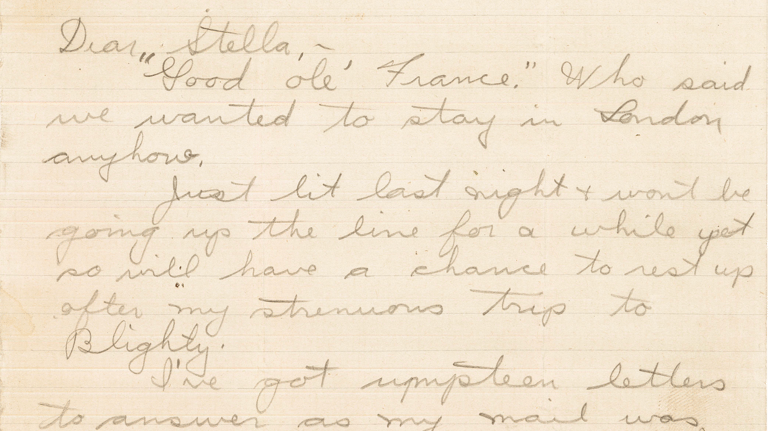 Dear Stella, –
"Good ole' France." Who said
we wanted to stay in London
anyhow.
Just lit last night & won't be
going up the line for a while yet
so will have a chance to rest up
after my strenuous trip to
Blighty.
I've got umpteen letters
to answer as my mail was